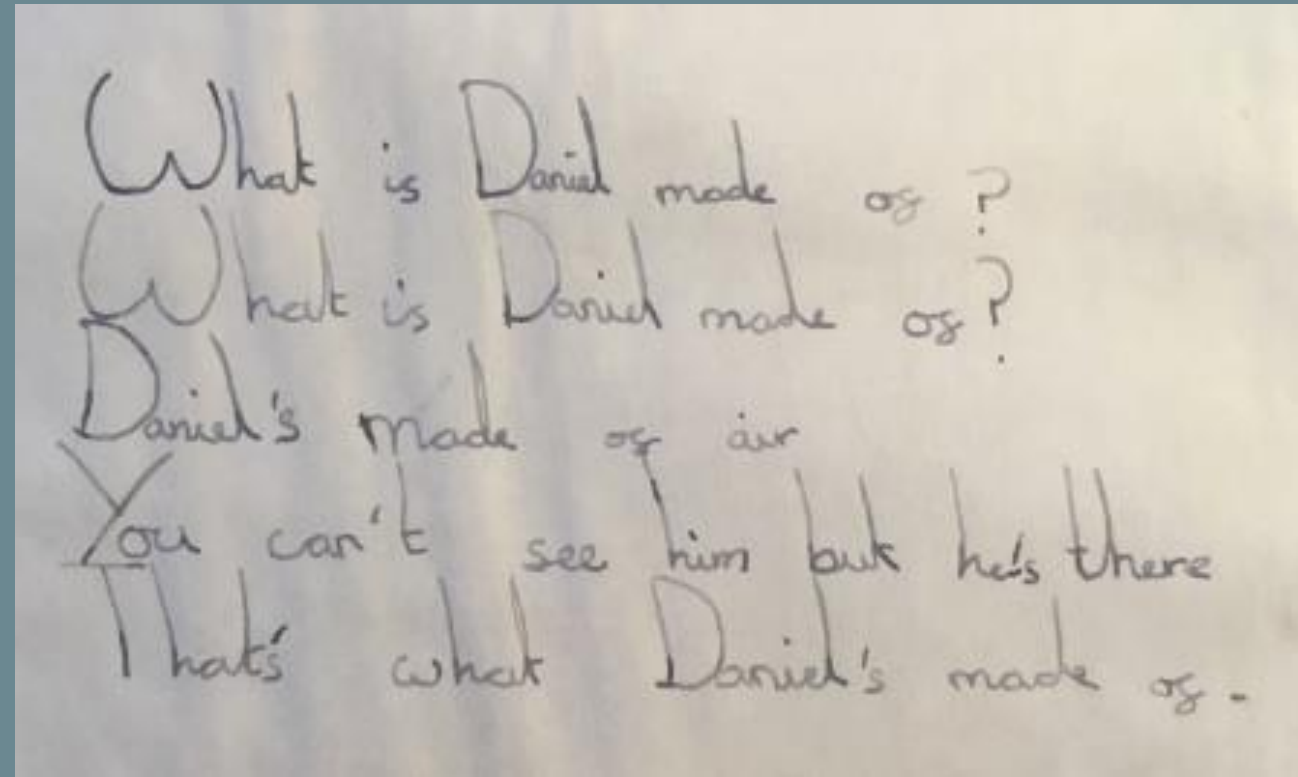 What is Daniel made of?
What is Daniel made of?
Daniel's made of air
You can't see him but he's there
That's what Daniel's made of.